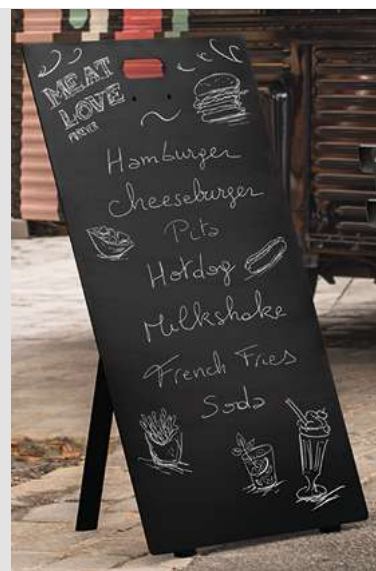 MEAT
LOVE
FOREVER
Hamburger
Cheeseburger
Pita
Hotdog
Milkshake
French Fries
Soda